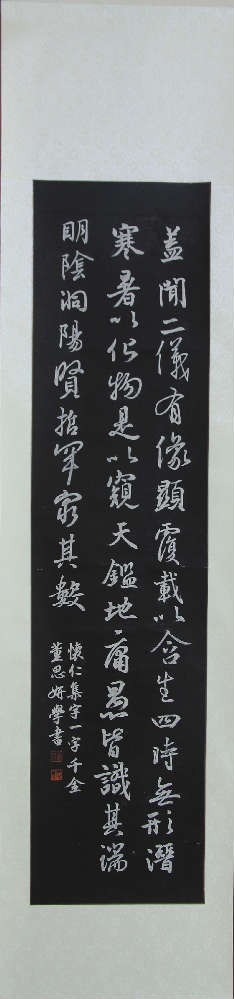 蓋聞二儀有像顯覆載以含生四時無形潛
寒暑以化物是以窺天鑑地庸愚皆識其端
明陰洞陽賢哲罕窮其數
懷仁集字一字千金
董思妍學書